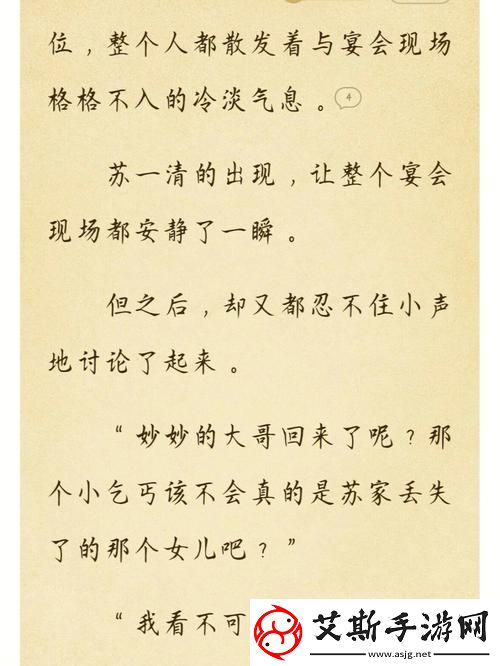 位，整个人都散发着与宴会现场
格格不入的冷淡气息。 4
苏一清的出现，让整个宴会
现场都安静了一瞬。
但之后，却又都忍不住小声
地讨论了起来。
“妙妙的大哥回来了呢？那
个小乞丐该不会真的是苏家丢失
了的那个女儿吧？”
“我看不可
艾斯手游网
www.asjg.net